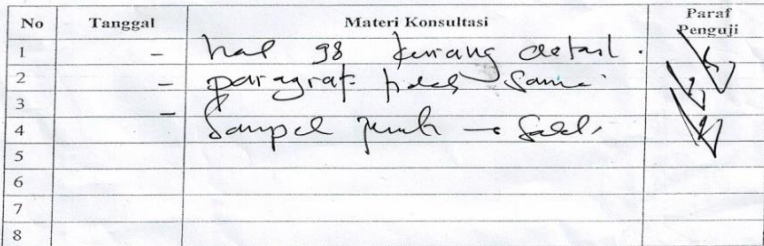 No Tanggal Materi Konsultasi Paraf Penguji
1 - hal 98 kurang detail.
2 - paragraf tidak sama
3 -
4 Sampel
5
6
7
8